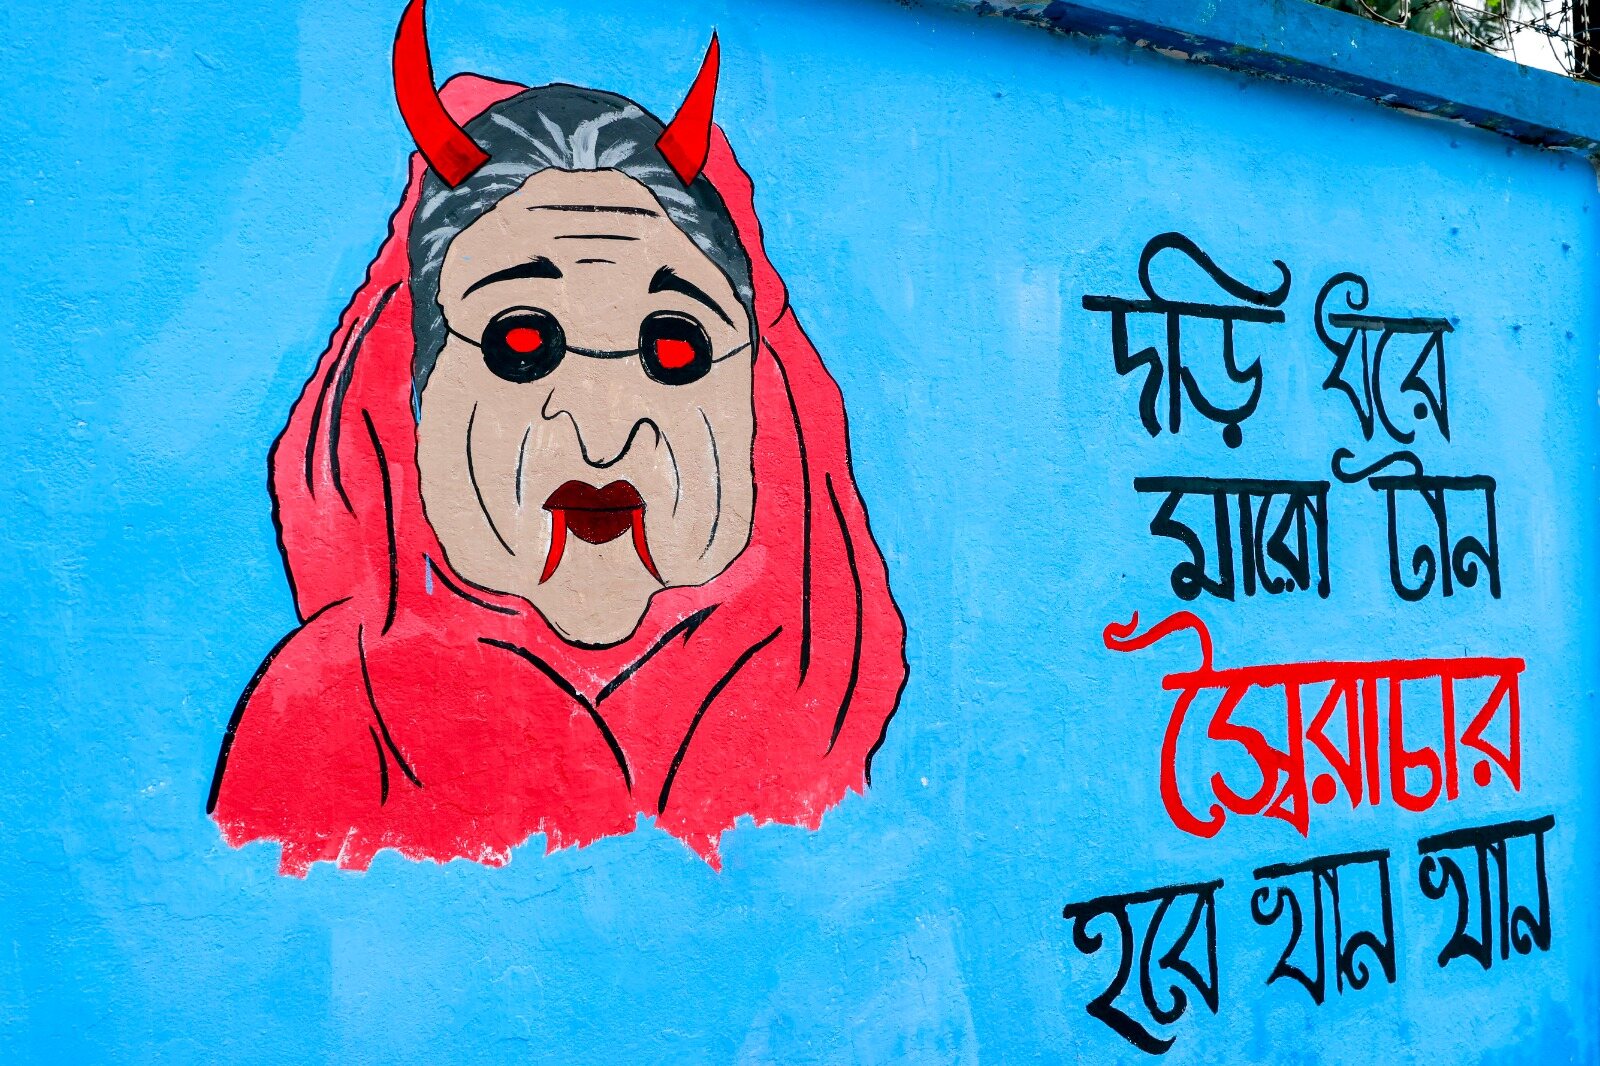 দড়ি ধরে
মারো টান
স্বৈরাচার
হবে খান খান